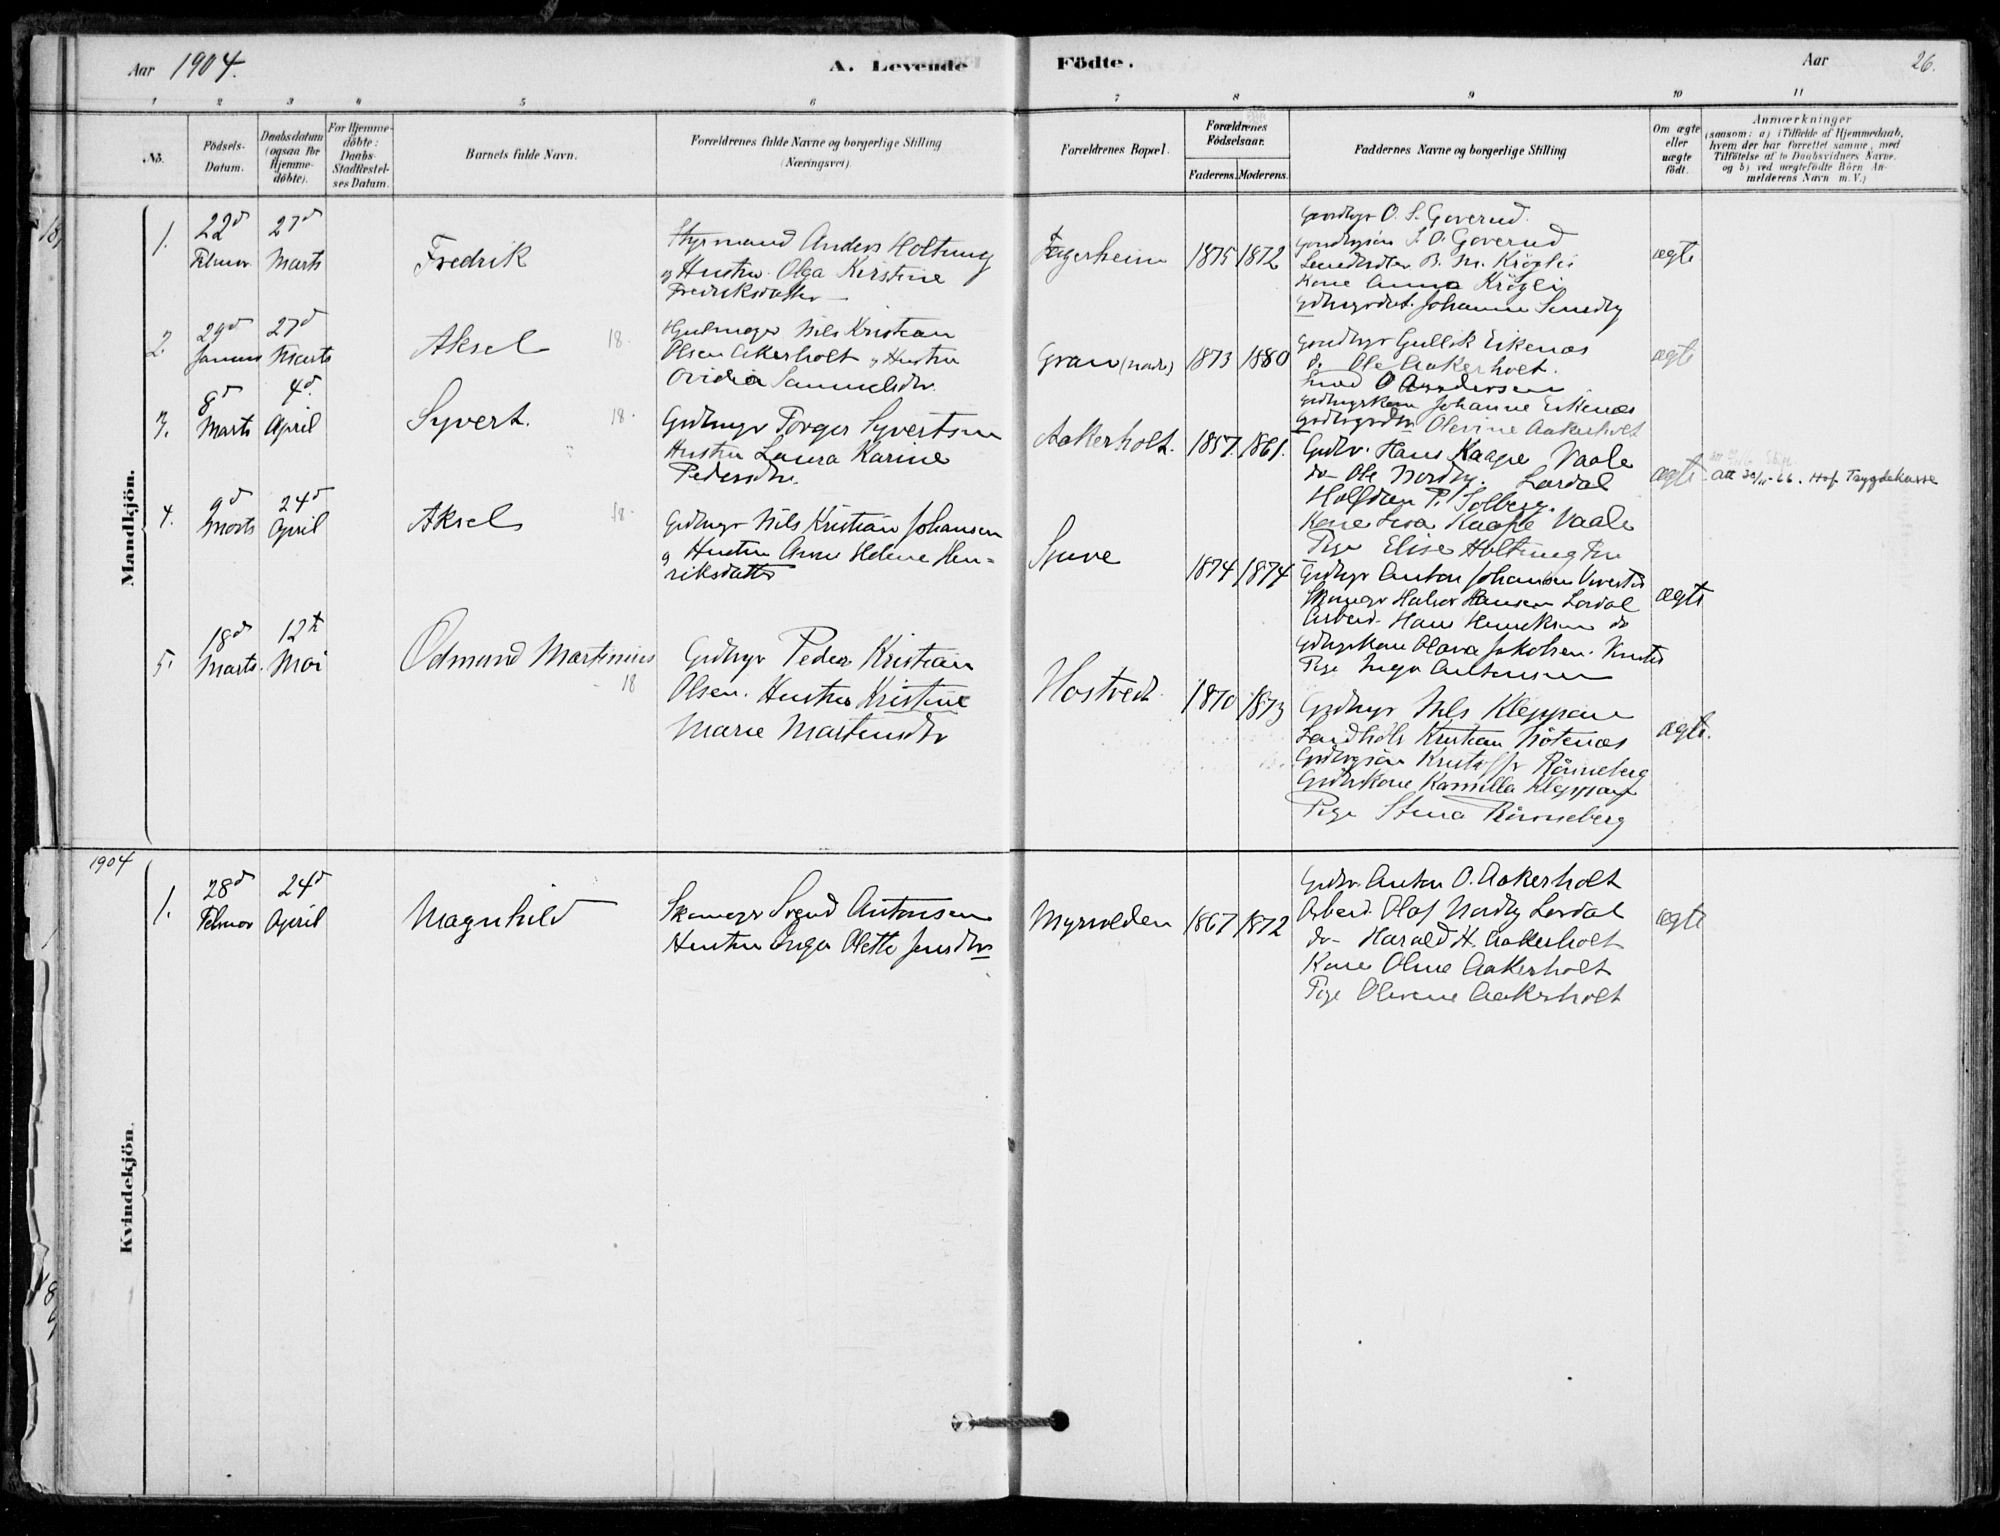 Aar 1904.
A. Levende
Födte.
Aar 26.
1 2 3 4 5 6 7 8 9 10 11
No.
Födsels-
Datum.
Daabsdatum
(ogsaa for
Hjemme-
döbte).
For Hjemme-
döbte:
Daabs-
Stadfæstel-
ses Datum.
Barnets fulde Navn.
Forældrenes fulde Navne og borgerlige Stilling
(Næringsvei).
Forældrenes Bopæl.
Forældrenes
Födselsaar.
Faderens. Moderens.
Faddernes Navne og borgerlige Stilling
Om ægte
eller
uægte
födt.
Anmærkninger
(saasom: a) i Tilfælde af Hjemmedaab,
hvem der har forrettet samme, med
Tilföielse af to Daabsvidners Navne,
og b) ved uægtefödte Börn An-
melderens Navn m. V.)
Mandkjön.
1.
22d
Februar
27d
Marts
Fredrik
Styrmand Anders Holtung
og Hustru Olga Kirstine
Fredriksdatter
Fagerheim
1875 1872
Gaardbgr O. S. Goverud
Gaardbgsön S. O. Goverud
B. M. Krögli
Kone Anna Krögli
Johanne Smedby
ægte
2.
29d
Januar
27d
Marts
Aksel 18-
Hjulmager Nils Kristian
Olsen Akerholt og Hustru
Ovidia Samuelsdtr.
Gran (nordre)
1873 1880
Gaardbgr Gullik Eikenæs
do Ole Aakerholt.
Smed O Andersen
Grdbgrkone Johanne Eikenæs
Olevine Aakerholt
ægte
3.
8d
Marts
4d.
April
Syvert. 18-
Grdbrgr Torger Syvertsen
Hustru Laura Karine
Pedersdtr.
Aakerholt.
1857. 1861.
Grdbr. Hans Kaape Vaale
do Ole Nordby. Lardal
Halfdan P. Solberg.
Kone Lisa Kaape Vaale
Pige Elise Holtung
ægte
att 30/11-66. Hof Trygdekasse
4.
9d
Marts
24d
April
Aksel 18-
Grdbrgr Nils Kristian Johansen
og Hustru Anne Helene Hen-
riksdatter
Sjuve
1874 1874
Grdbgr Anton Johansen
Skomagr Halvor Hansen Lardal
Arbeid. Hans Henriksen do
Grdbgrkone Olava Jakobsen.
Pige Inga Antonsen
ægte
5.
18d
Marts.
12te
Mai
Odmund Martinius
18
Grdbrgr Peder Kristian
Olsen. Hustru Kristine
Marie Martinsdtr
Hostvedt
1870 1873
Grdbrgr Nils Kleppan
Landhdlr Kristian Nötenæs
Grdbrgsön Kristoffer Rönneberg
Grdbrkone Kamilla Kleppan
Pige Stina Rönneberg
ægte.
1904
Kvindekjön.
1.
28d
Februar
24d
April
Magnhild
Skomagr Svend Antonsen
Hustru Inga Olette Jensdtr
Myrvolden
1867 1872
Grdbr. Anton O. Aakerholt
Arbeid. Olaf Nordby Lardal
do- Harald H. Aakerholt
Kone Oline Aakerholt
Pige Olevine Aakerholt
ægte